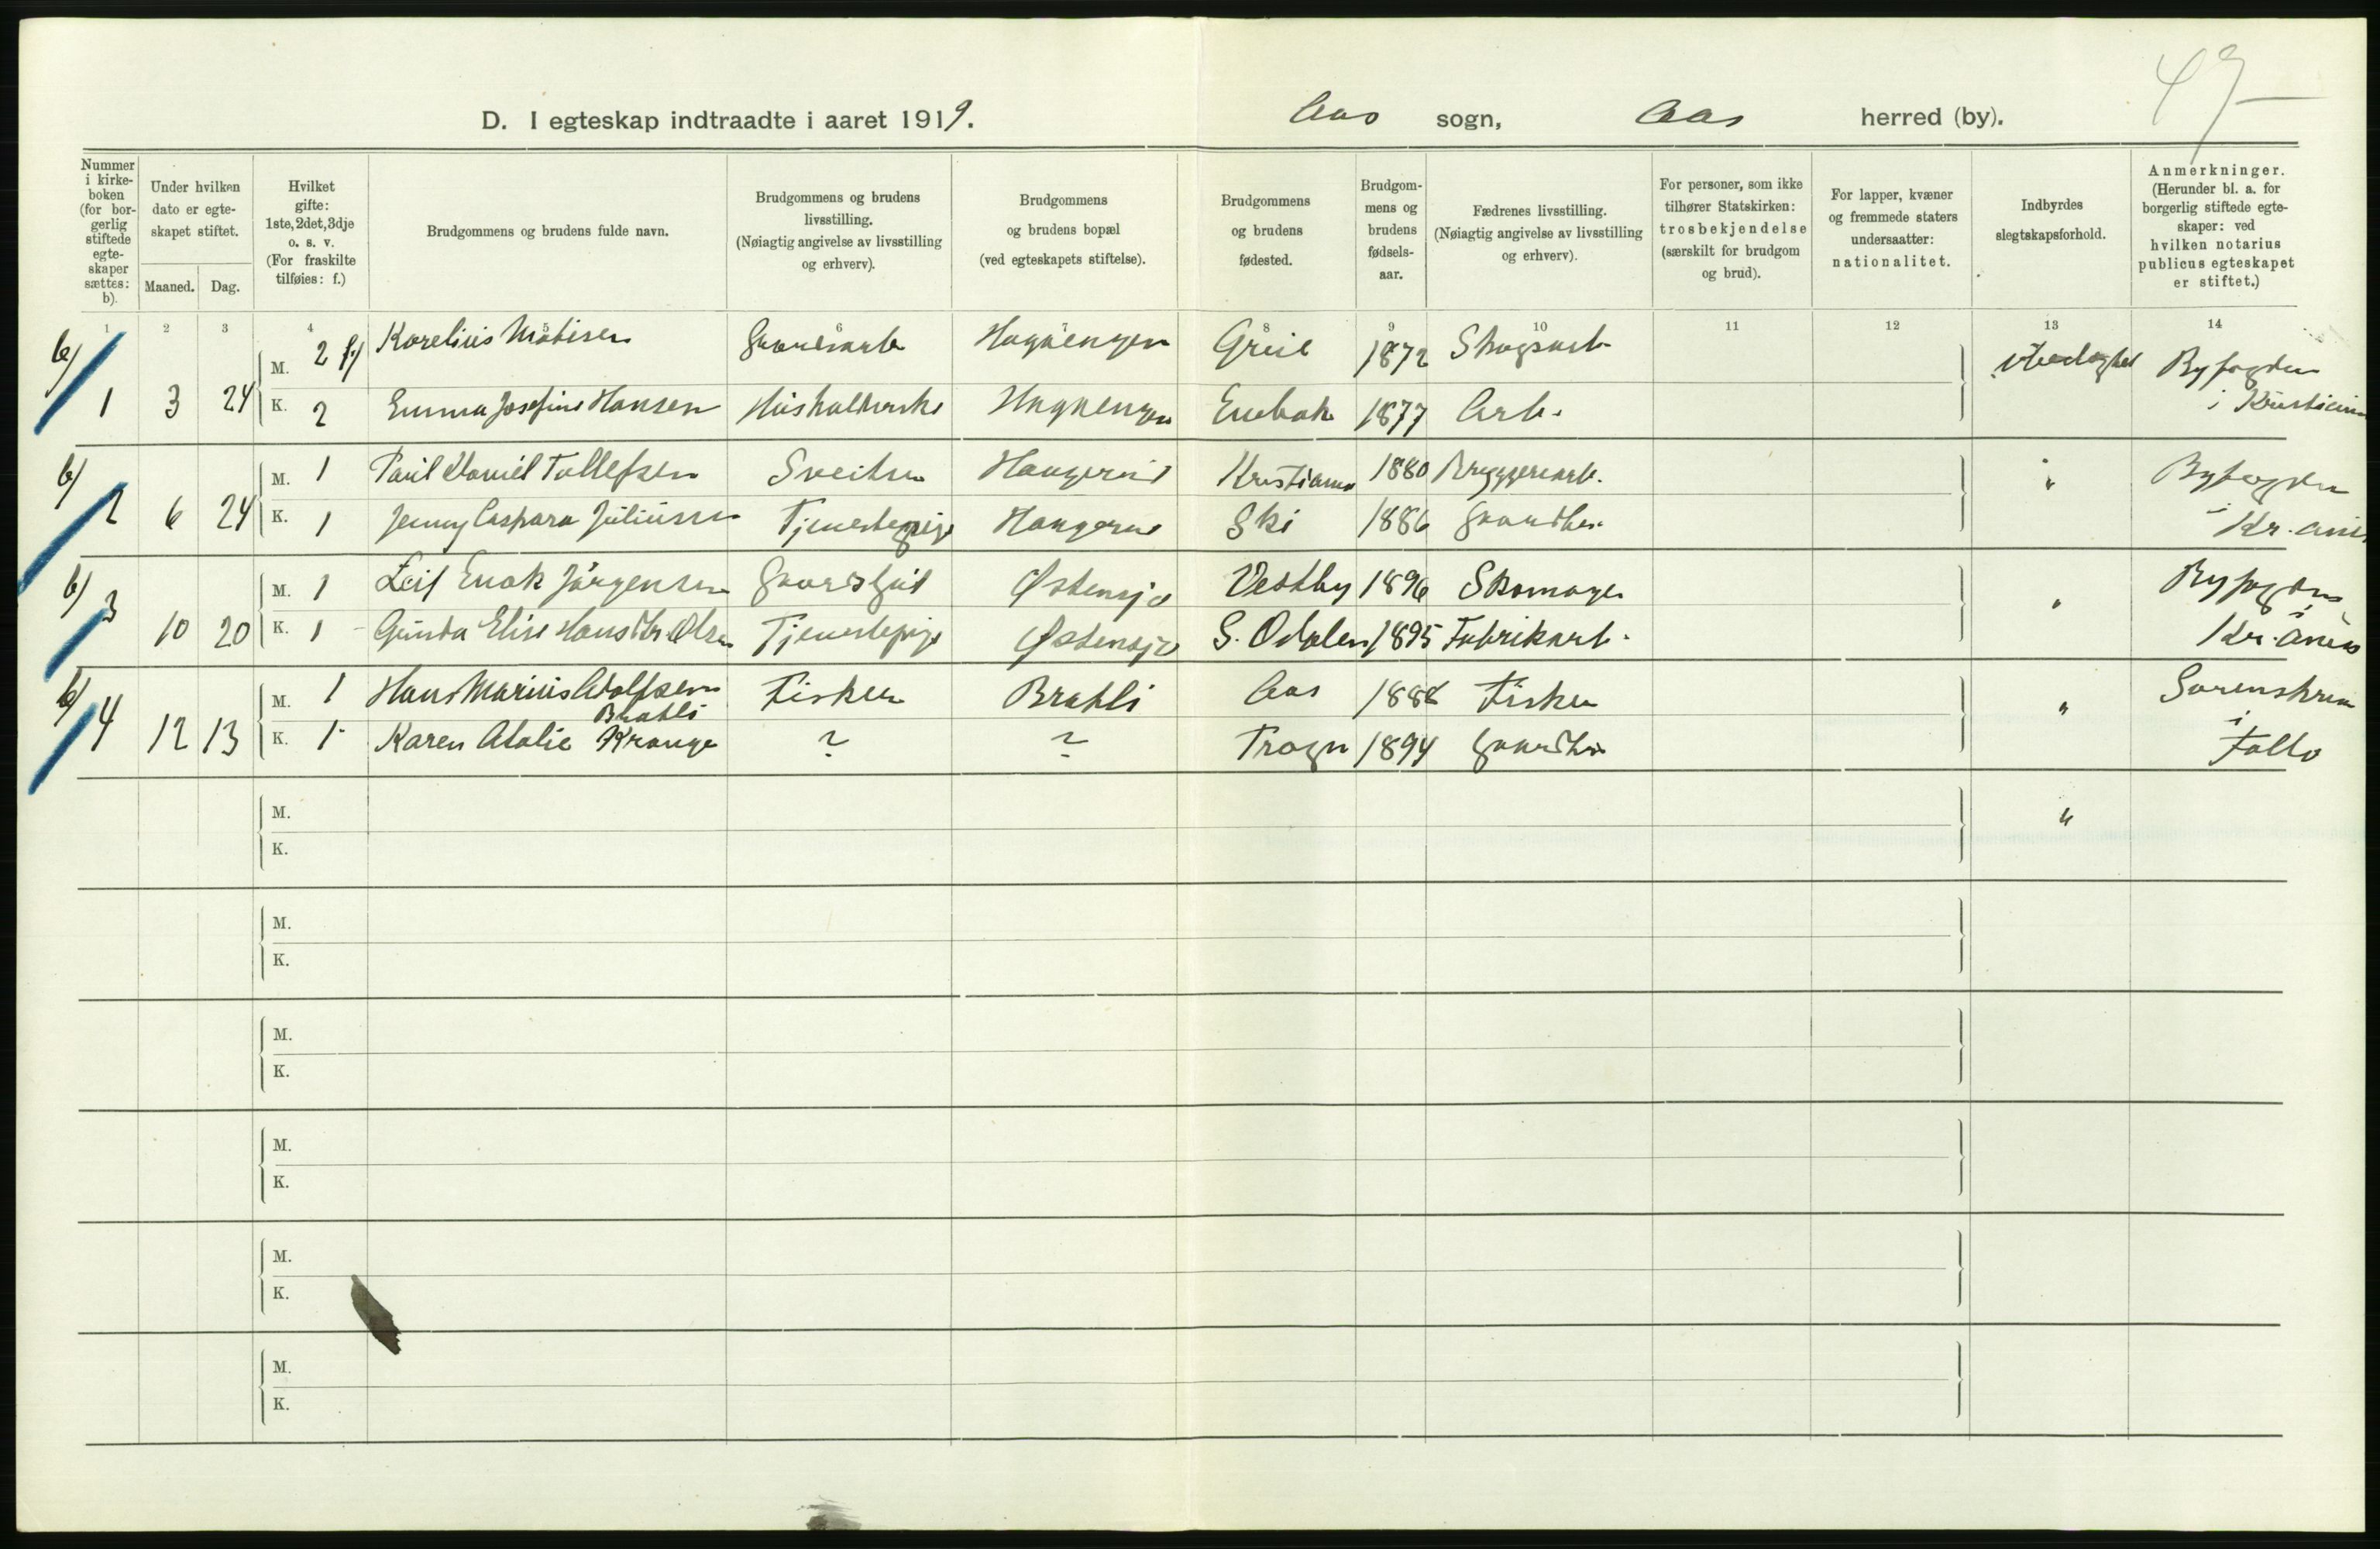 47
D. I egteskap indtraadte i aaret 1919. Aas sogn, Aas herred (by).
Nummer i kirke-boken (for bor-gerlig stiftede egte-skaper sættes: b).
Under hvilken dato er egte-skapet stiftet.
Maaned. Dag.
Hvilket gifte: 1ste, 2det, 3dje o. s. v. (For fraskilte tilføies: f.)
Brudgommens og brudens fulde navn.
Brudgommens og brudens livsstilling. (Nøiagtig angivelse av livsstilling og erhverv).
Brudgommens og brudens bopæl (ved egteskapets stiftelse).
Brudgommens og brudens fødested.
Brudgom-mens og brudens fødsels-aar.
Fædrenes livsstilling. (Nøiagtig angivelse av livsstilling og erhverv).
For personer, som ikke tilhører Statskirken: trosbekjendelse (særskilt for brudgom og brud).
For lapper, kvæner og fremmede staters undersaatter: nationalitet.
Indbyrdes slegtskapsforhold.
Anmerkninger. (Herunder bl. a. for borgerlig stiftede egte-skaper: ved hvilken notarius publicus egteskapet er stiftet.)
1 2 3 4 5 6 7 8 9 10 11 12 13 14
b) M. 2 f) Karelius Matisen Gaardsarb Hagaengen 1872 Skogsarb. Ubeslegtet Byfogden
1 3 24 K. 2 Emma Josefine Hansen Husholderske Hagaengen Enebak 1877 Arb. i Kristiania
b) M. 1 Paul Daniel Tollefsen Sveitser Haugerud Kristiania 1880 Bryggeriarb. " Byfogden
2 6 24 K. 1 Jenny Caspara Juliussen Tjenestepige Ski 1886 Gaardbr. i Kr.ania
b) M. 1 Leif Enok Jørgensen Gaardsgut Østensjø Vestby 1896 Skomager " Byfogden
3 10 20 K. 1 Gunda Elise Hansdtr. Olsen Tjenestepige Østensjø S. Odalen 1895 Fabrikarb. i Kr.ania
b) M. 1 Hans Marius Adolfsen Brahli Fisker Brahli Aas 1888 Fisker " Sorenskriver
4 12 13 K. 1 Karen Atalie Krange ? ? Frogn 1894 Gaardbr. i Follo
M. "
K.
M.
K.
M.
K.
M.
K.
M.
K.
M.
K.